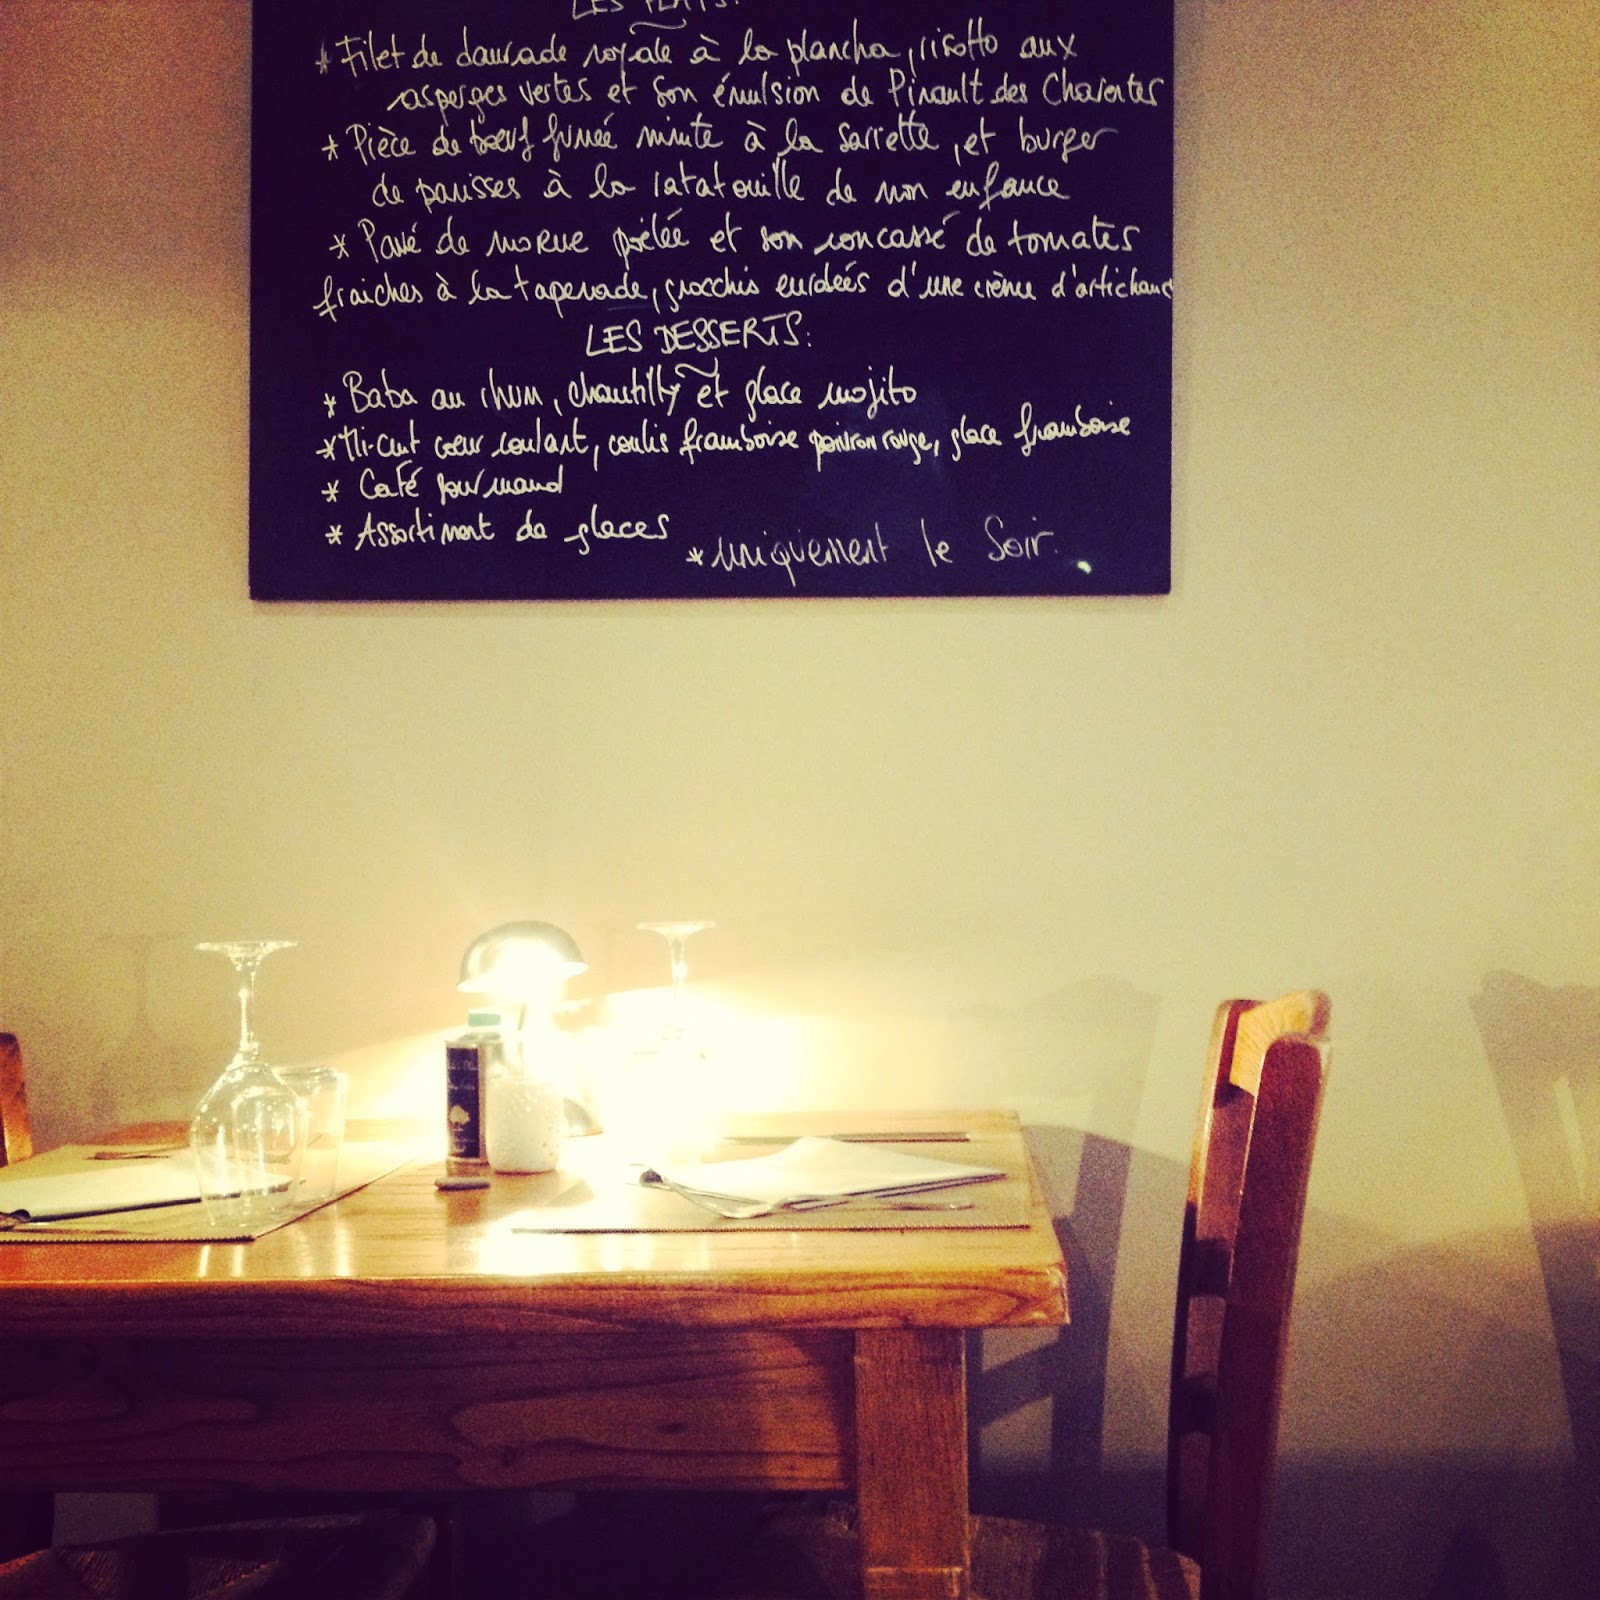 LES PLATS:
* Filet de daurade royale à la plancha, risotto aux
asperges vertes et son émulsion de Pinault des Charentes
* Pièce de boeuf fumée minute à la sarriette, et burger
de panisses à la ratatouille de mon enfance
* Pavé de morue poêlée et son concassé de tomates
fraiches à la tapenade, gnocchis enrobés d'une crème d'artichaut
LES DESSERTS:
* Baba au rhum, chantilly et glace mojito
* Mi-cuit coeur coulant, coulis framboise poivron rouge, glace framboise
* Café gourmand
* Assortiment de glaces
* uniquement le Soir.